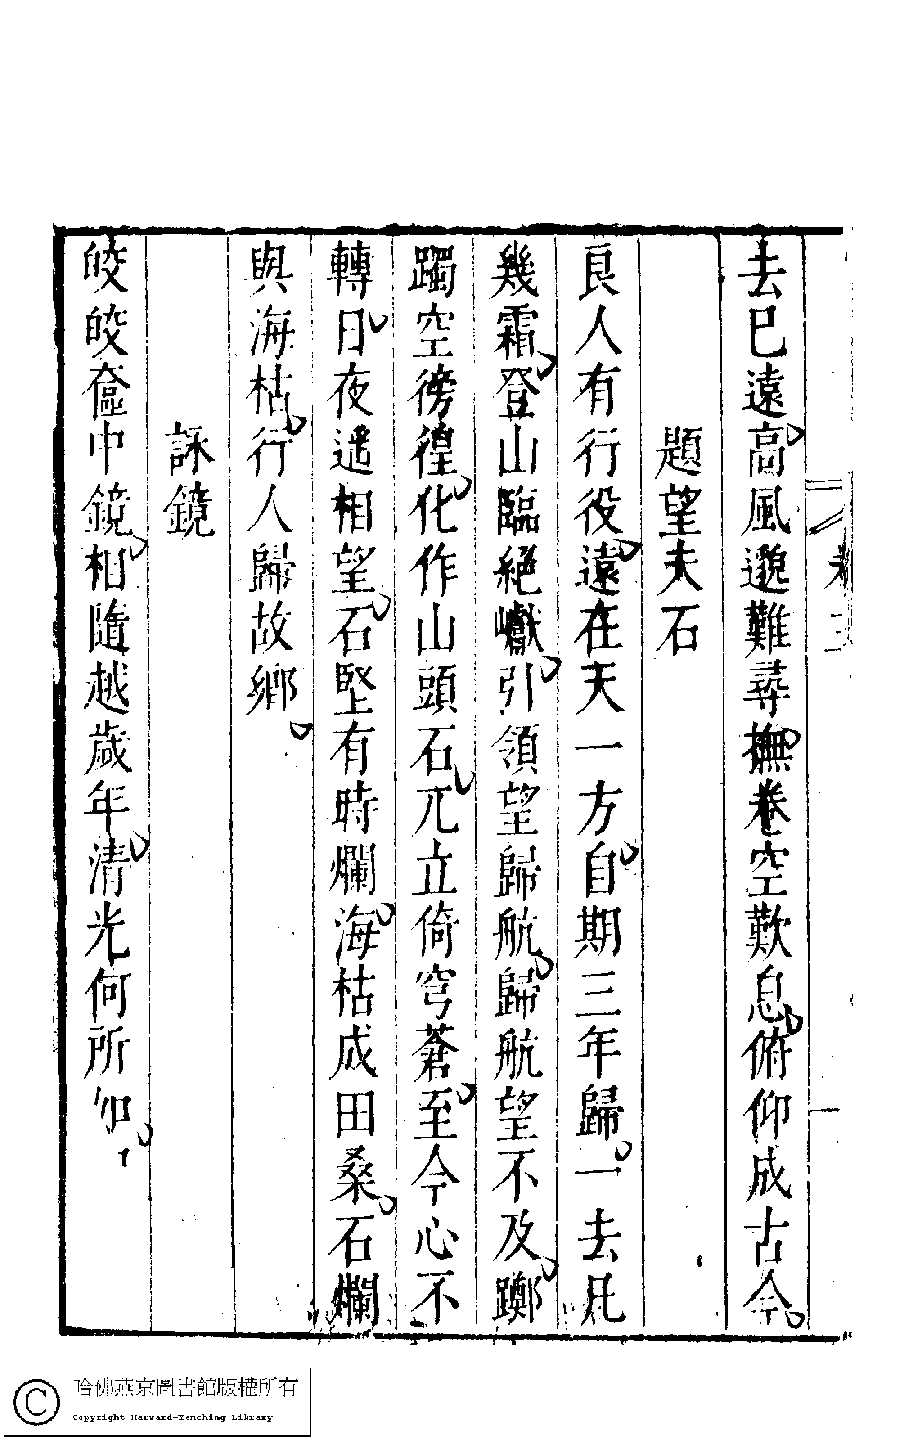 去已遠高風邈難尋撫卷空歎息俯仰成古今
題望夫石
良人有行役遠在天一方自期三年歸一去凡
幾霜登山臨絕巘引領望歸航歸航望不及躑
躅空徬徨化作山頭石兀立倚穹蒼至今心不
轉日夜遥相望石堅有時爛海枯成田桑石爛
與海枯行人歸故鄉
詠鏡
皎皎奩中鏡相隨越歲年清光何所如
哈佛燕京圖書館版權所有
Copyright Harvard-Yenching Library